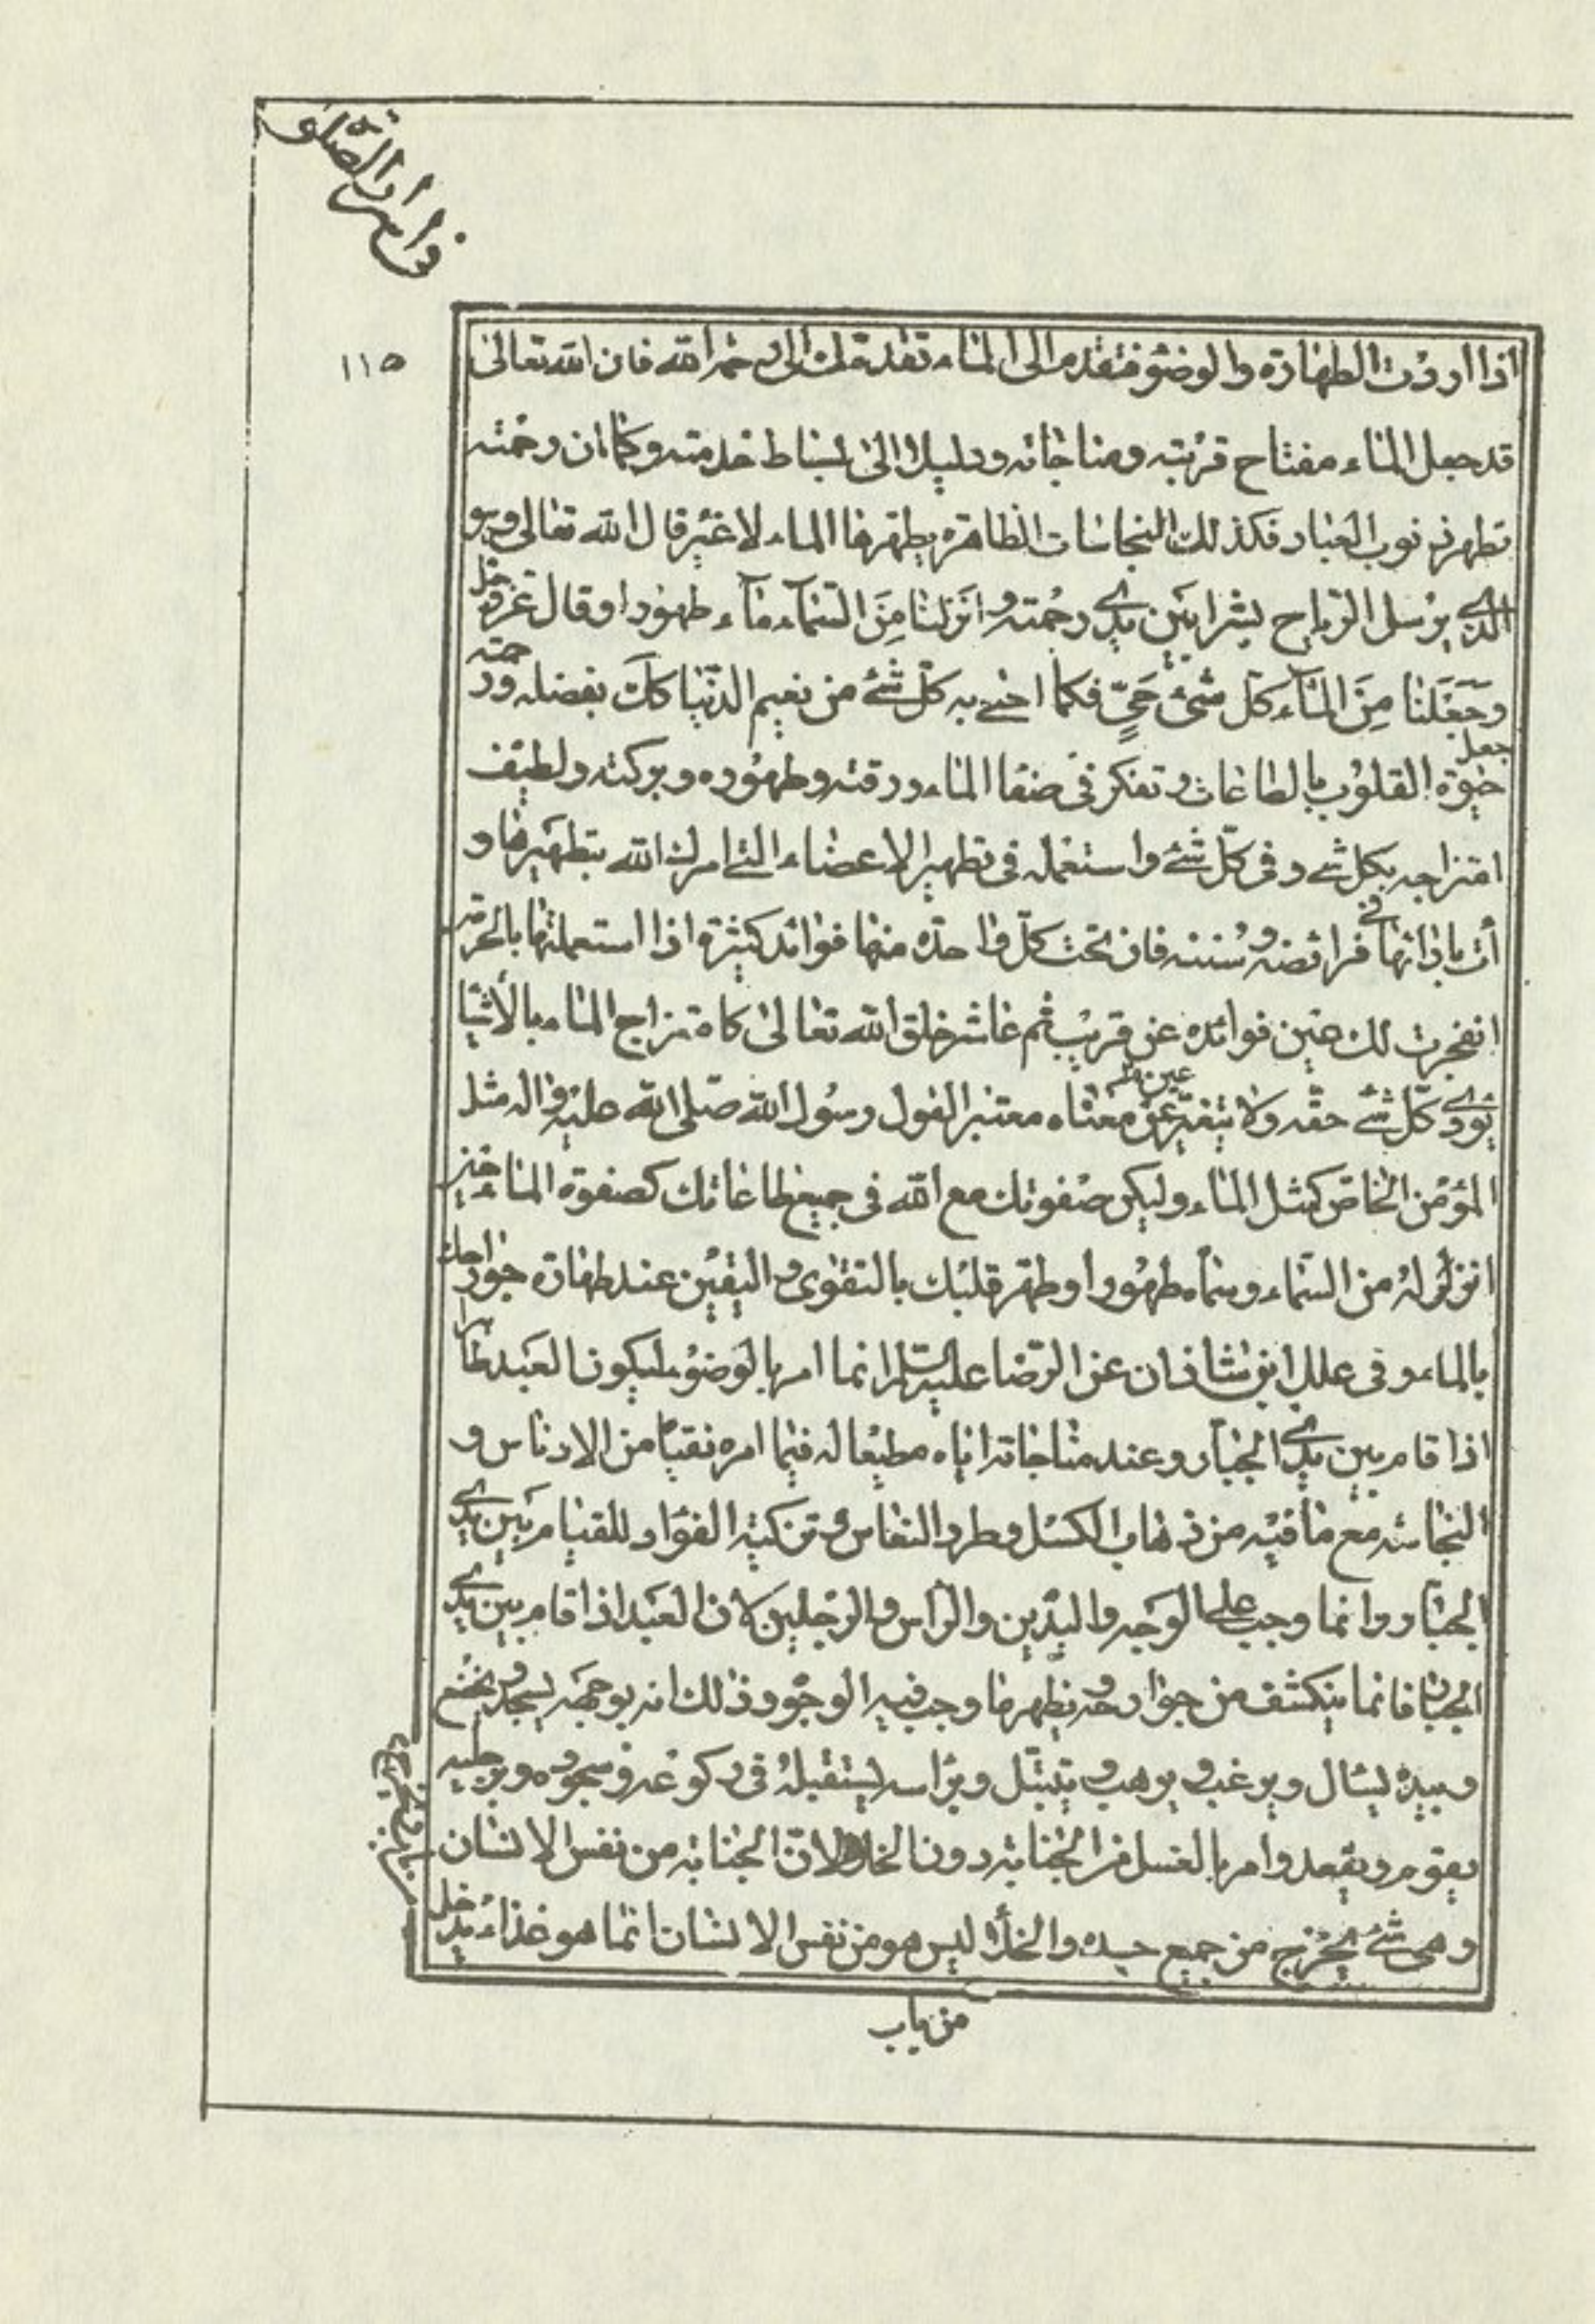 في اسرار الصلوة
١١٥
اذا اردت الطهارة والوضوء فتقدم الى الماء تقدمك الى رحمة الله فان الله تعالى
قد جعل الماء مفتاح قربته ومناجاته ودليلا الى بساط خدمته وكما ان رحمته
تطهر ذنوب العباد فكذلك النجاسات الظاهرة يطهرها الماء لا غير قال الله تعالى وهو
الذي يرسل الرياح بشرا بين يدي رحمته وانزلنا من السماء ماء طهورا وقال عز وجل
وجعلنا من الماء كل شئ حي فكما احيى به كل شئ من نعيم الدنيا كك بفضله ورحمته جعل
حيوة القلوب بالطاعات وتفكر في صفا الماء ورقته وطهوره وبركته ولطيف
امتزاجه بكل شئ وفي كل شئ واستعمله في تطهير الاعضاء التي امرك الله بتطهيرها و
أت باذائها في فرائضه وسننه فان تحت كل واحدة منها فوائد كثيرة اذا استعملتها بالحرمة
انفجرت لك عين فوائده عن قريب ثم عاشر خلق الله تعالى كامتزاج الماء بالأشيا
يؤدي كل شئ حقه ولا يتغير عن معناه معتبرا لقول رسول الله صلى الله عليه واله مثل
المؤمن الخاص كمثل الماء وليكن صفوتك مع الله في جميع طاعاتك كصفوة الماء حين
انزله من السماء وسماه طهورا وطهر قلبك بالتقوى واليقين عند طهارة جوارحك
بالماء وفي علل ابن شاذان عن الرضا عليه السلم انما امر بالوضوء ليكون العبد طاهرا
اذا قام بين يدي الجبار وعند مناجاته اياه مطيعا له فيما امره نقيا من الادناس و
النجاسة مع ما فيه من ذهاب الكسل وطرد النعاس وتزكية الفؤاد للقيام بين يدي
الجبار وانما وجب على الوجه واليدين والرأس والرجلين لان العبد اذا قام بين يدي
الجبار فانما ينكشف من جوارحه ويظهر ما وجب فيه الوضوء وذلك انه بوجهه يسجد ويخضع
وبيده يسال ويرغب ويرهب ويتبتل وبراسه يستقبله في ركوعه وسجوده وبرجليه
يقوم ويقعد وامر بالغسل من الجنابة دون الخلاء لان الجنابة من نفس الانسان
وهي شئ يخرج من جميع جسده والخلاء ليس هو من نفس الانسان انما هو غذاء يدخل
من باب